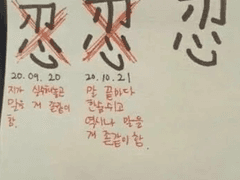 忍 忍 忍
20.09.20
지가 실수해놓고
말을 저 존같이
함.
20.10.21
말 끝마다
한숨쉬고
역시나 말을
저 존같이 함.